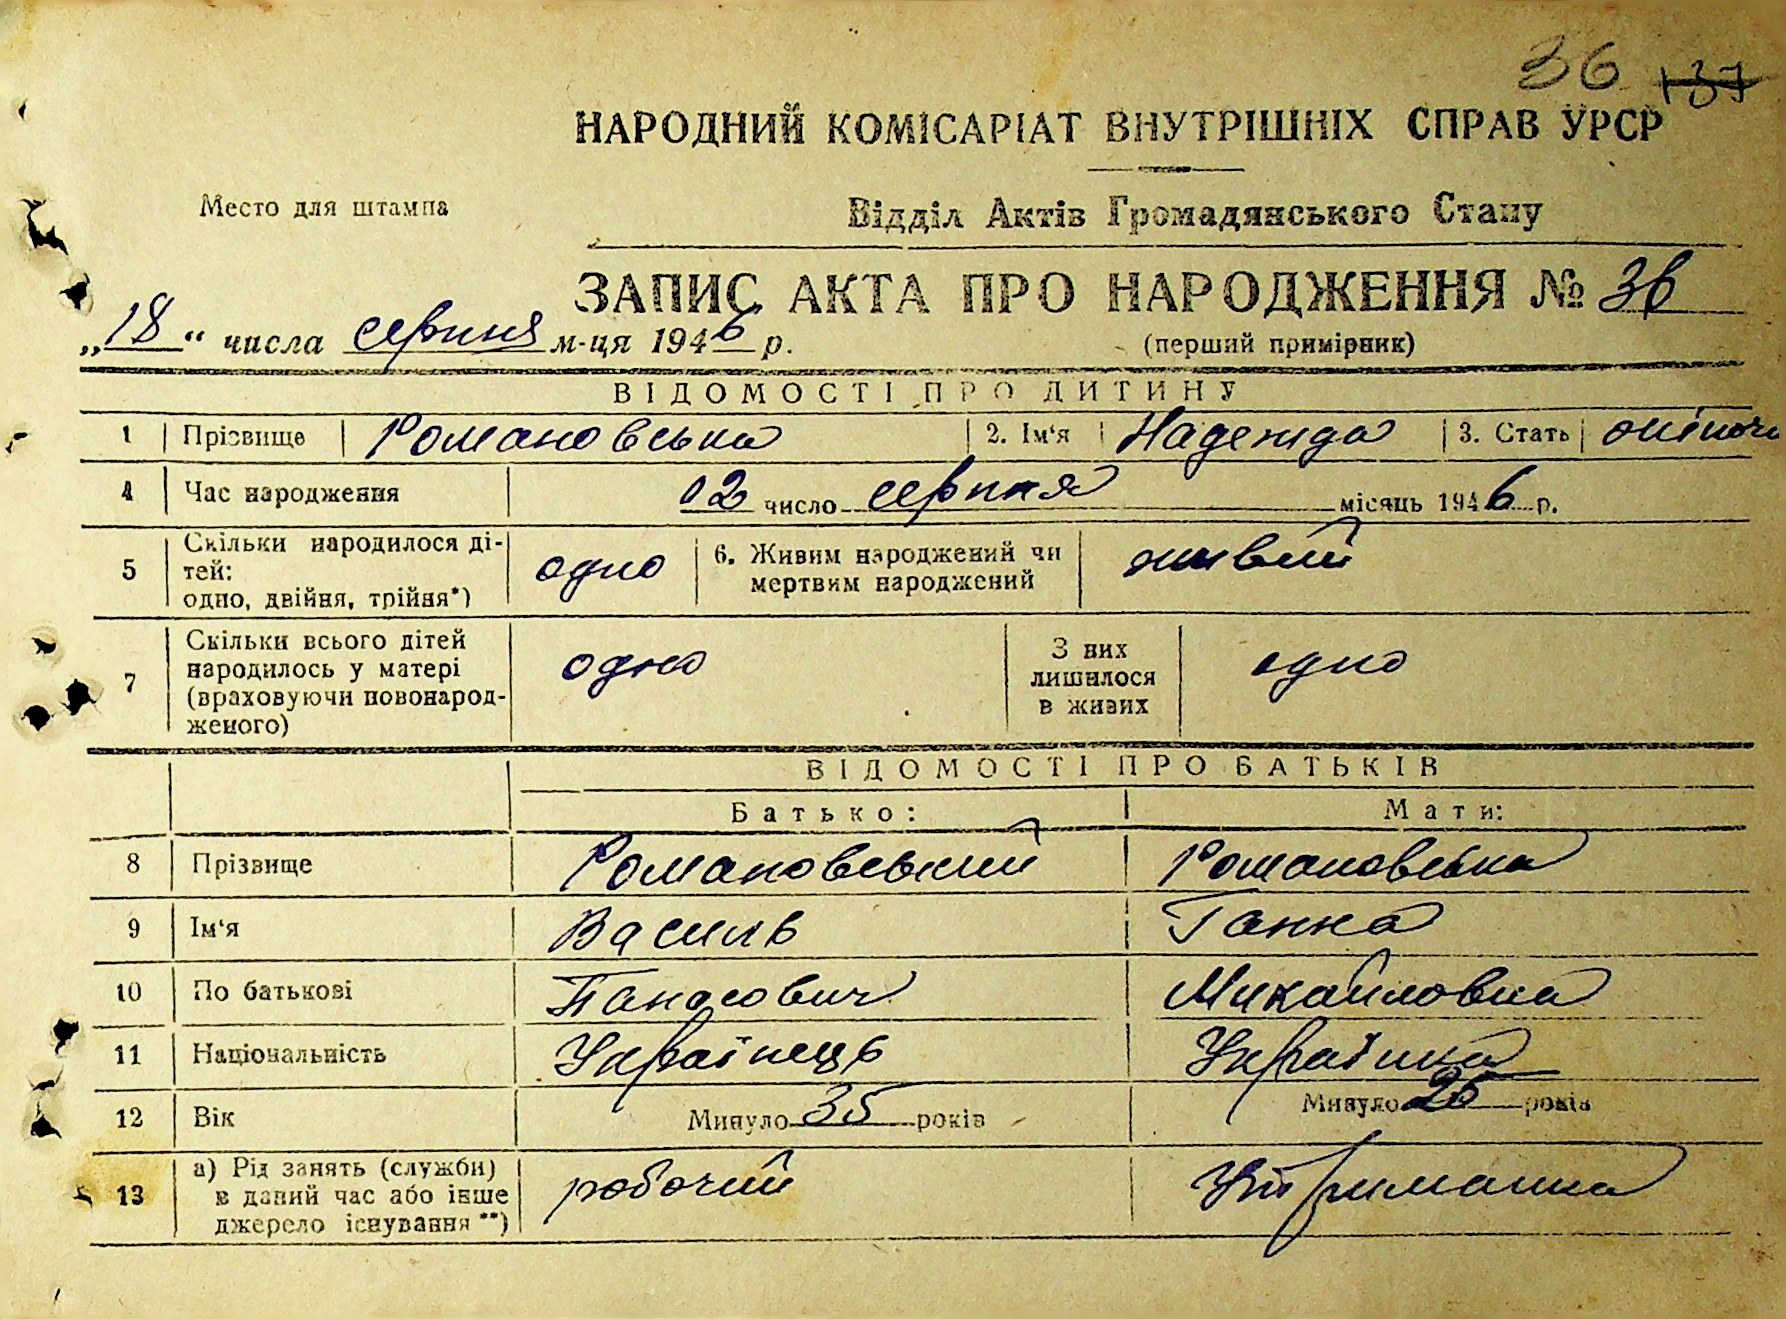 36 137
НАРОДНИЙ КОМІСАРІАТ ВНУТРІШНІХ СПРАВ УРСР
Место для штампа
Відділ Актів Громадянського Стану
ЗАПИС АКТА ПРО НАРОДЖЕННЯ № 36
„18“ числа серпня м-ця 1946 р.
(перший примірник)
ВІДОМОСТІ ПРО ДИТИНУ
1 Прізвище Романовська 2. Ім'я Надежда 3. Стать жіноча
4 Час народження 02 число серпня місяць 1946 р.
5 Скільки народилося ді-
тей:
одно, двійня, трійня*) одно 6. Живим народжений чи
мертвим народжений живий
7 Скільки всього дітей
народилось у матері
(враховуючи новонарод-
женого) одно З них
лишилося
в живих одно
ВІДОМОСТІ ПРО БАТЬКІВ
Батько: Мати:
8 Прізвище Романовський Романовська
9 Ім'я Василь Ганна
10 По батькові Панасович Михайловна
11 Національність Українець Українка
12 Вік Минуло 35 років Минуло 25 років
13 а) Рід занять (служби)
в даний час або інше
джерело існування **) робочий Утриманка